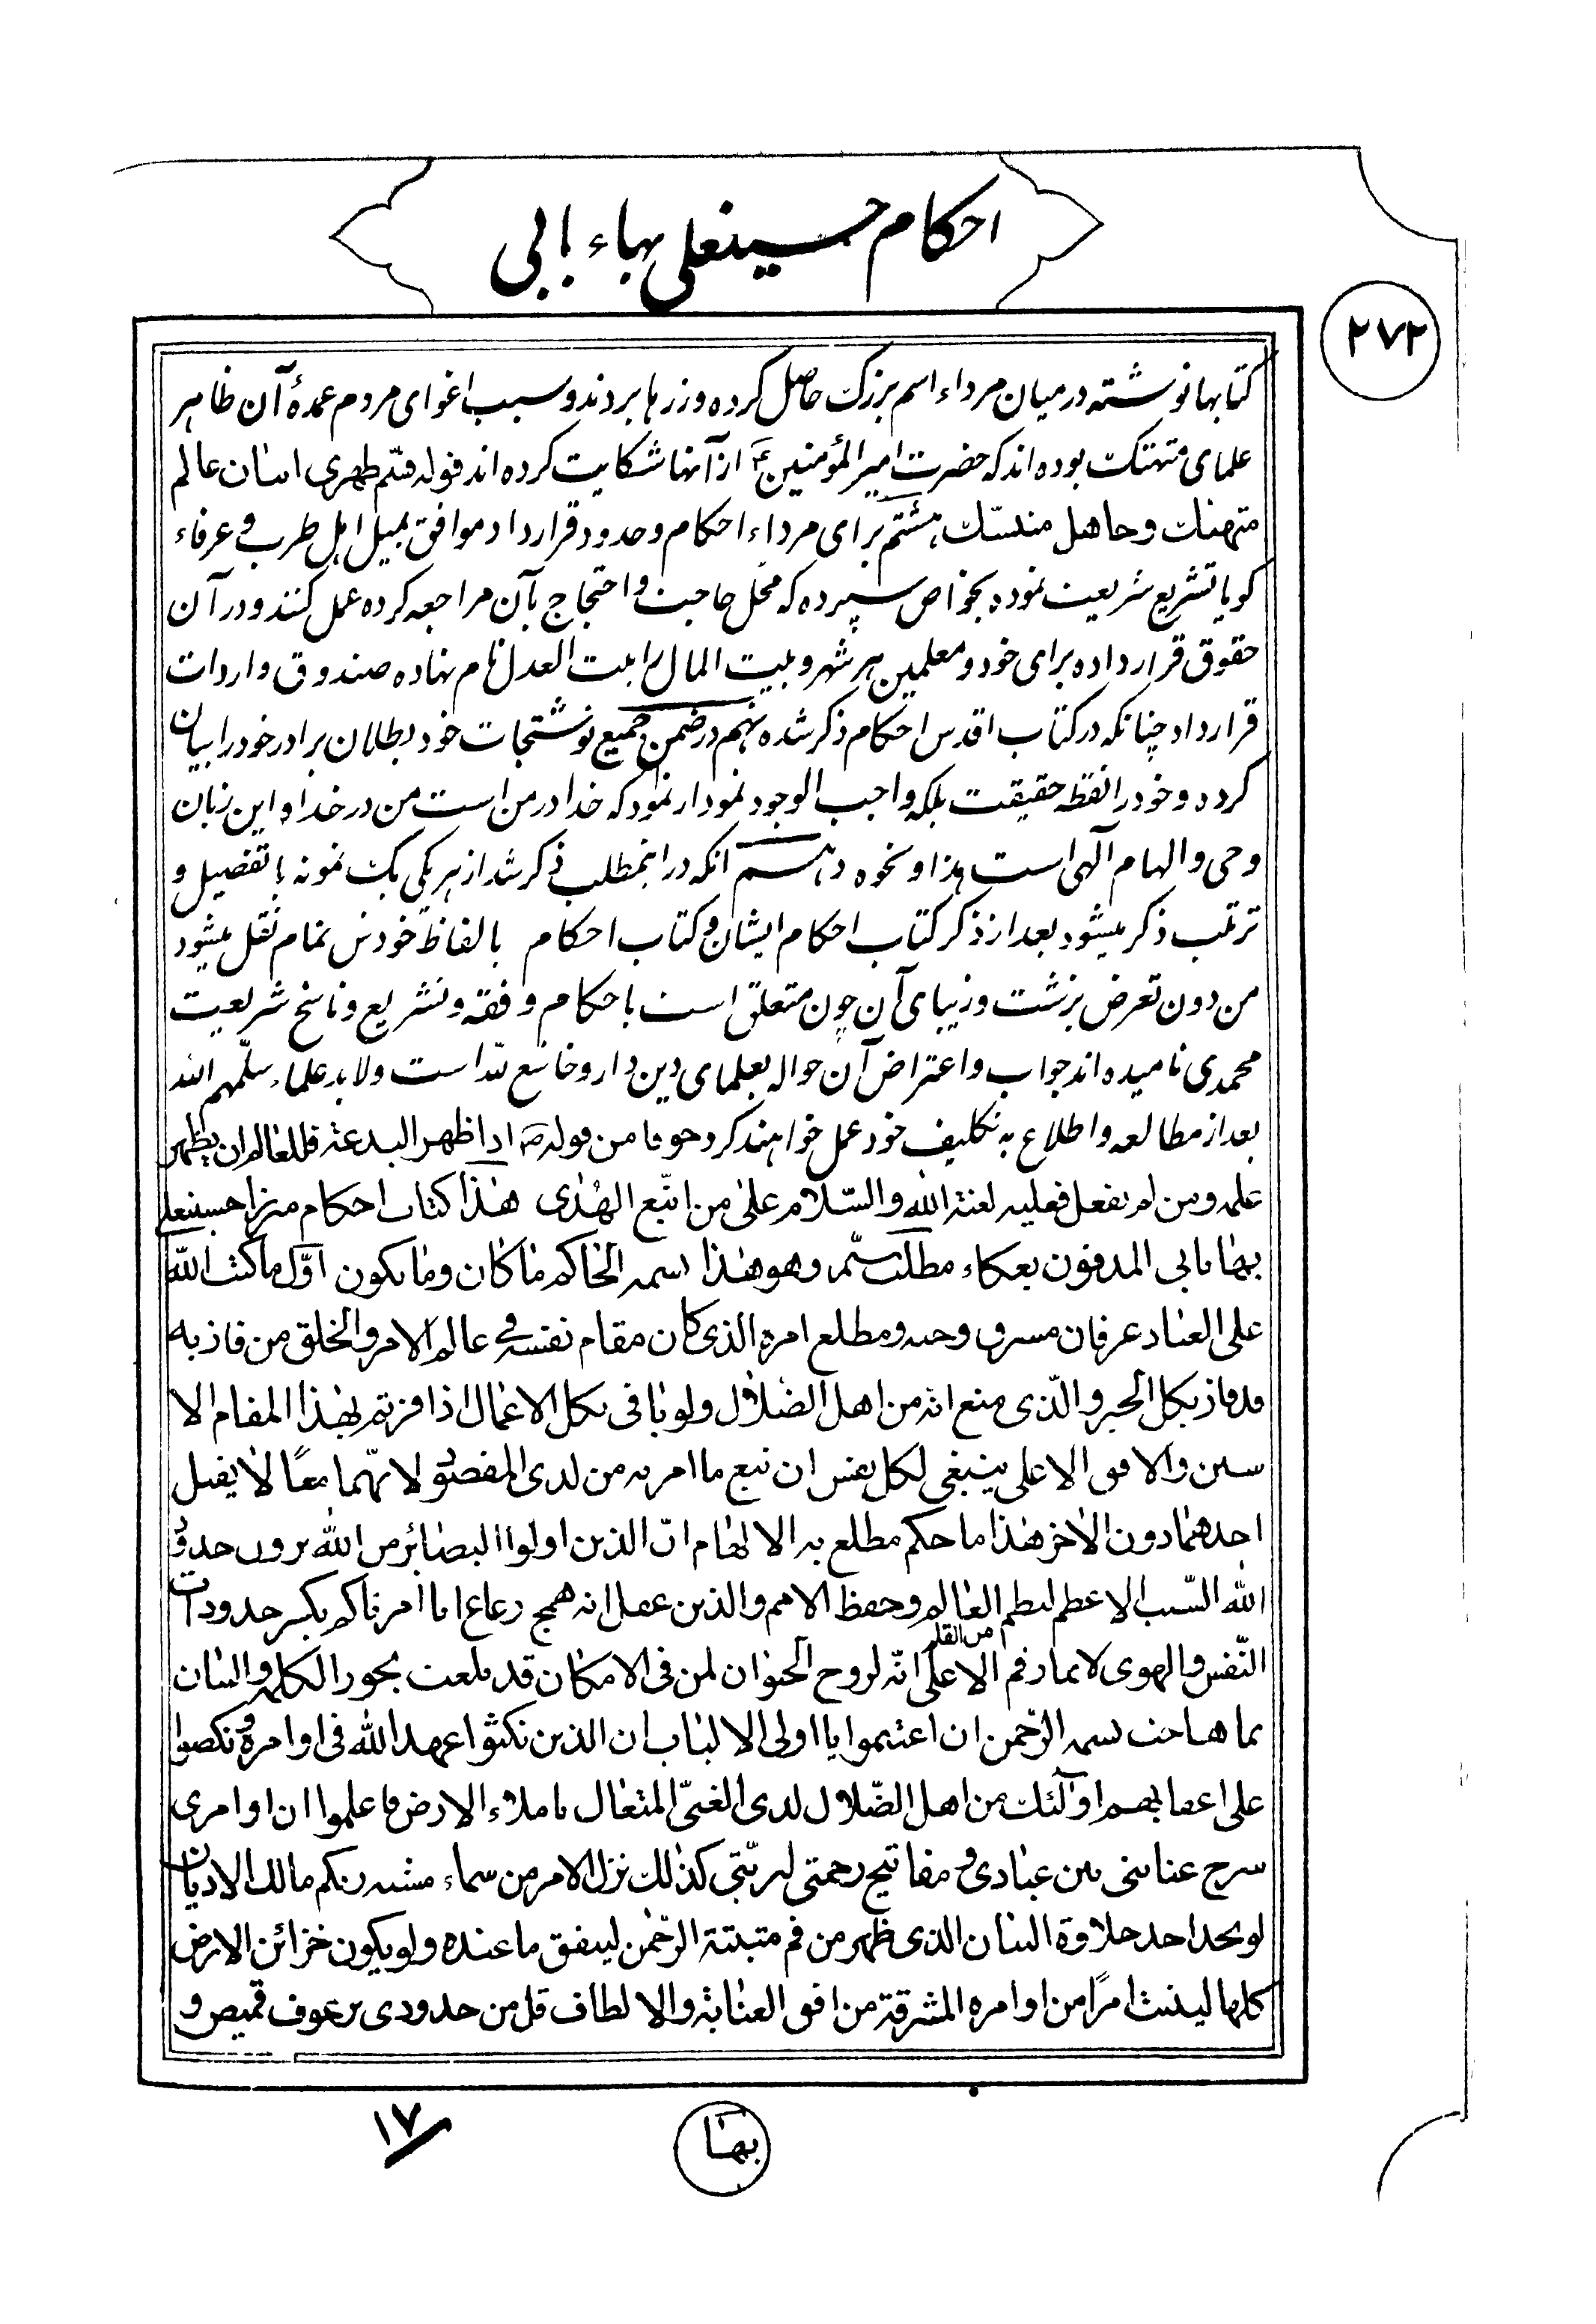 احکام حسینعلی بهاء بابی
۲۷۲
کتابها نوشته در میان مرداء اسم بزرک حاصل کرده وزرها بردند و سبب اغوای مردم عمدهٔ آن ظاهر
علمای متهتک بوده‌اند که حضرت امیر المؤمنین ع از آنها شکایت کرده‌اند قوله قصّم ظهری اسان عالم
متهتک و جاهل متنسّک هشتم برای مرداء احکام و حدود قرار داد موافق بمیل اهل طرب و عرفاء
کویا تشریع شریعت نموده بخواص سپرده که محلّ حاجت و احتجاج بآن مراجعه کرده عمل کنند و در آن
حقوق قرار داده برای خود و معلمین هر شهر و بیت المال را بیت العدل نام نهاده صندوق واردات
قرار داد چنانکه در کتاب اقدس احکام ذکر شده نهم در ضمن جمیع نوشتجات خود بطلان برادر خود را بیان
کرده و خود را نقطه حقیقت بلکه واجب الوجود نمودار نمود که خدا در من است من در خدا و این زبان
وحی و الهام آلهی است هذا و نحوه دهم انکه در اینمطلب ذکر شد از هر یکی یک نمونه با تفصیل و
ترتیب ذکر میشود بعد از ذکر کتاب احکام ایشان و کتاب احکام بالفاظ خودش تمام نقل میشود
من دون تعرض بزشت و زیبای آن چون متعلق است باحکام و فقه و تشریع و ناسخ شریعت
محمدی نامیده‌اند جواب و اعتراض آن حواله بعلمای دین دار و خاشع لله است ولا بد علماء سلّمهم الله
بعد از مطالعه و اطلاع به تکلیف خود عمل خواهند کرد خوفا من قوله ص اذا ظهر البدعة فللعالم ان یظهر
علمه ومن لم یفعل فعلیه لعنة الله والسّلام علیٰ من اتّبع الهُدٰی هٰذا کتاب احکام میرزا حسینعلی
بهٰا بابی المدفون بعکاء مطلب ستم وهو هٰذا بسمه الحٰاکم مٰا کٰان ومٰا یکون اوّل ما کتب اللّه
علی العبٰاد عرفان مشرق وحیه ومطلع امره الذی کان مقام نفسه فی عالم الامر والخلق من فاز به
قد فاز بکل الخیر والّذی منع انه من اهل الضّلال ولو یٰاتی بکل الاعمٰال اذا فزتم بهٰذا المقام الا
سنی والافق الاعلی ینبغی لکل نفس ان یتبع ما امر به من لدی المقصود لانّهما معًا لا یقبل
احدهمٰا دون الاٰخر هٰذا ما حکم مطلع به الالهٰام انّ الذین اولوا البصٰائر من اللّه یرون حدود
اللّه السّبب الاعظم لنظم العٰالم وحفظ الامم والذین غفل انه همج رعاع انا امرناکم بکسر حدودات
النّفس والهوی لا بما رقم من القلم الاعلٰی انّه لروح الحیوٰان لمن فی الامکٰان قد ماجت بحور الکلمه والبیٰان
بما هاجت نسمه الرّحمن ان اغتنموا یا اولی الالبٰاب ان الذین نکثوا عهد اللّه فی اوامره ونکصوا
علی اعقابهم اولٰٓئک من اهل الضّلال لدی الغنیّ المتعٰال یا ملاء الارض فاعلموا ان اوامری
سرج عنایتی بین عبٰادی و مفاتیح رحمتی لبریّتی کذٰلک نزل الامر من سماء مشیه ربکم مالک الادیان
لو یجد احد حلاوة البیٰان الذی ظهر من فم مشیة الرّحمٰن لینفق ما عنده ولو یکون خزائن الارض
کلها لیثبت امرًا من اوامره المشرقة من افق العنٰایة والالطاف قل من حدودی یر عوف قمیص و
بهٰا
۱۷